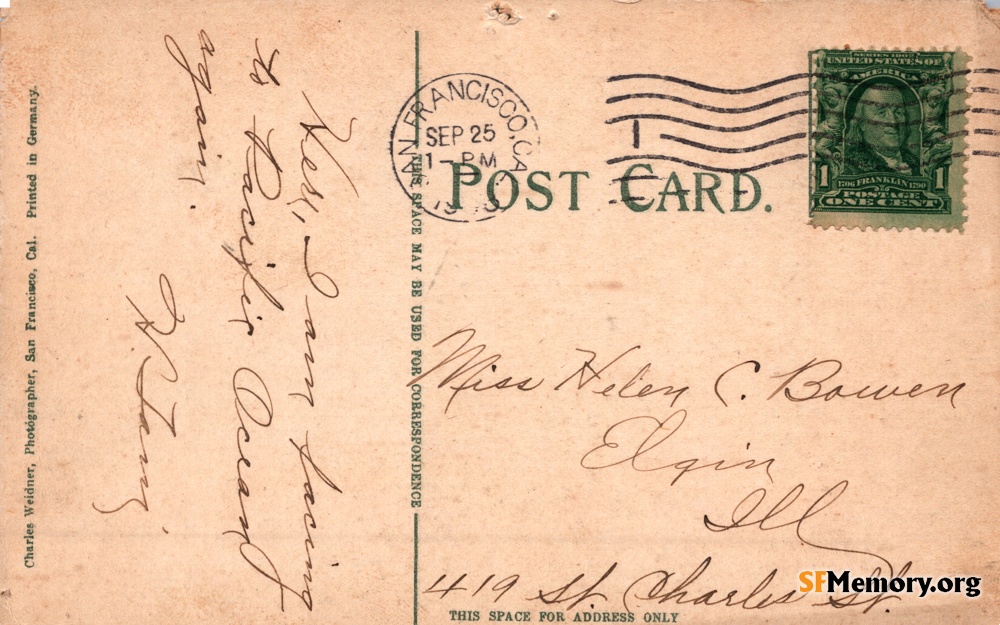 Charles Weidner, Photographer, San Francisco, Cal. Printed in Germany.
I am facing
to Pacific Ocean
again.
THIS SPACE MAY BE USED FOR CORRESPONDENCE
SAN FRANCISCO, CA
SEP 25
1-PM
POST CARD.
SERIES 1902
UNITED STATES OF
AMERICA
1 1
1706 FRANKLIN 1790
POSTAGE
ONE CENT
Miss Helen C. Bowen
Elgin
Ill
419 St. Charles St.
THIS SPACE FOR ADDRESS ONLY
SFMemory.org